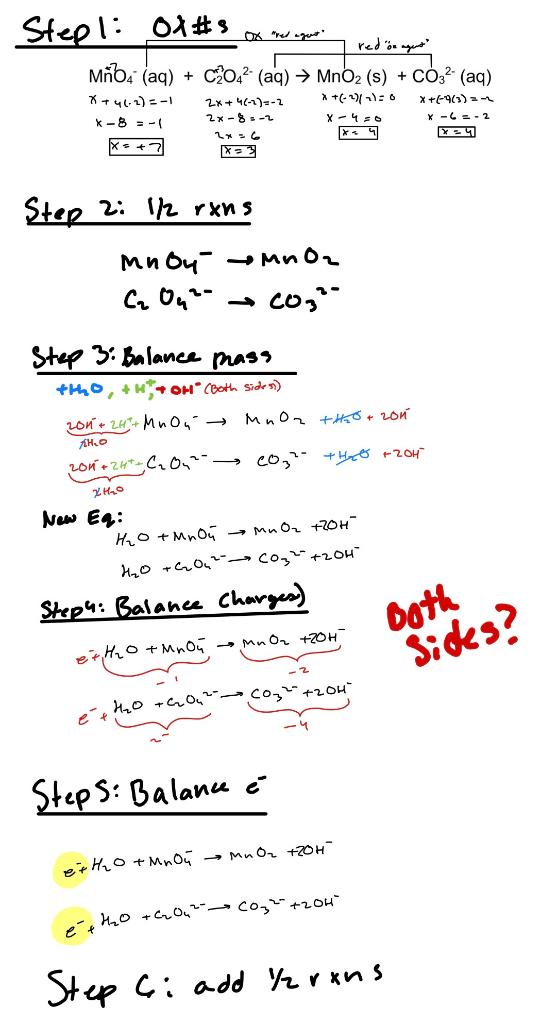 Step 1: OX #s
OX "red agent"
red "ox agent"
+7 +3
MnO₄⁻ (aq) + C₂O₄²⁻ (aq) → MnO₂ (s) + CO₃²⁻ (aq)
x + 4(-2) = -1 2x + 4(-2) = -2 x + (-2)(2) = 0 x + (-2)(3) = -2
x - 8 = -1 2x - 8 = -2 x - 4 = 0 x - 6 = -2
x = +7 2x = 6 x = 4 x = 4
x = 3
Step 2: 1/2 rxns
MnO₄⁻ → MnO₂
C₂O₄²⁻ → CO₃²⁻
Step 3: Balance mass
+H₂O, +H⁺, +OH⁻ (Both sides)
2OH⁻ + 2H⁺ + MnO₄⁻ → MnO₂ + H₂O + 2OH⁻
2H₂O
2OH⁻ + 2H⁺ + C₂O₄²⁻ → CO₃²⁻ + H₂O + 2OH⁻
2H₂O
New Eq:
H₂O + MnO₄⁻ → MnO₂ + 2OH⁻
H₂O + C₂O₄²⁻ → CO₃²⁻ + 2OH⁻
Step 4: Balance Charge(s)
e⁻ + H₂O + MnO₄⁻ → MnO₂ + 2OH⁻
-1 -2
e⁻ + H₂O + C₂O₄²⁻ → CO₃²⁻ + 2OH⁻
2⁻ -4
Both
Sides?
Step 5: Balance e⁻
e⁻ + H₂O + MnO₄⁻ → MnO₂ + 2OH⁻
e⁻ + H₂O + C₂O₄²⁻ → CO₃²⁻ + 2OH⁻
Step 6: add 1/2 rxns